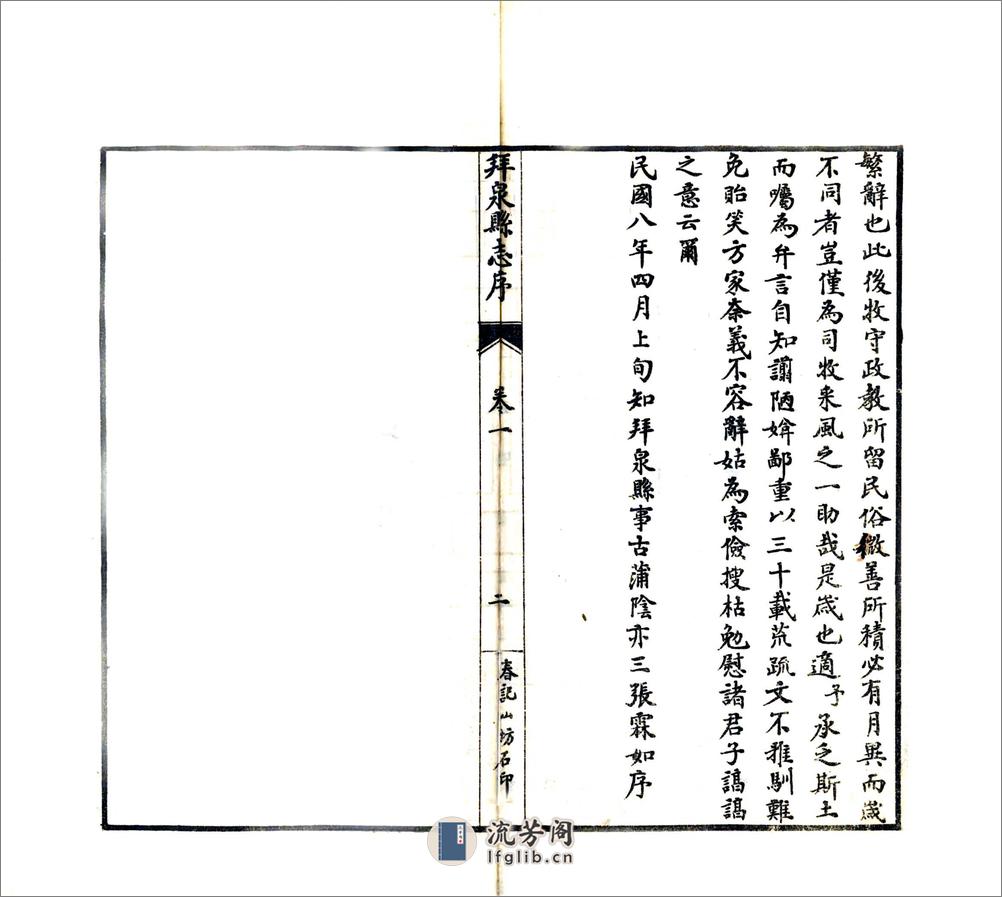 繁辭也此後牧守政教所留民俗微善所積必有月異而歲
不同者豈僅為司牧采風之一助哉是歲也適予承乏斯土
而囑為弁言自知譾陋媕鄙重以三十載荒疏文不雅馴難
免貽笑方家奈義不容辭姑為索儉搜枯勉慰諸君子謁謁
之意云爾
民國八年四月上旬知拜泉縣事古蒲陰亦三張霖如序
拜泉縣志序
卷一
二
春記山坊石印
流芳阁
lfglib.cn